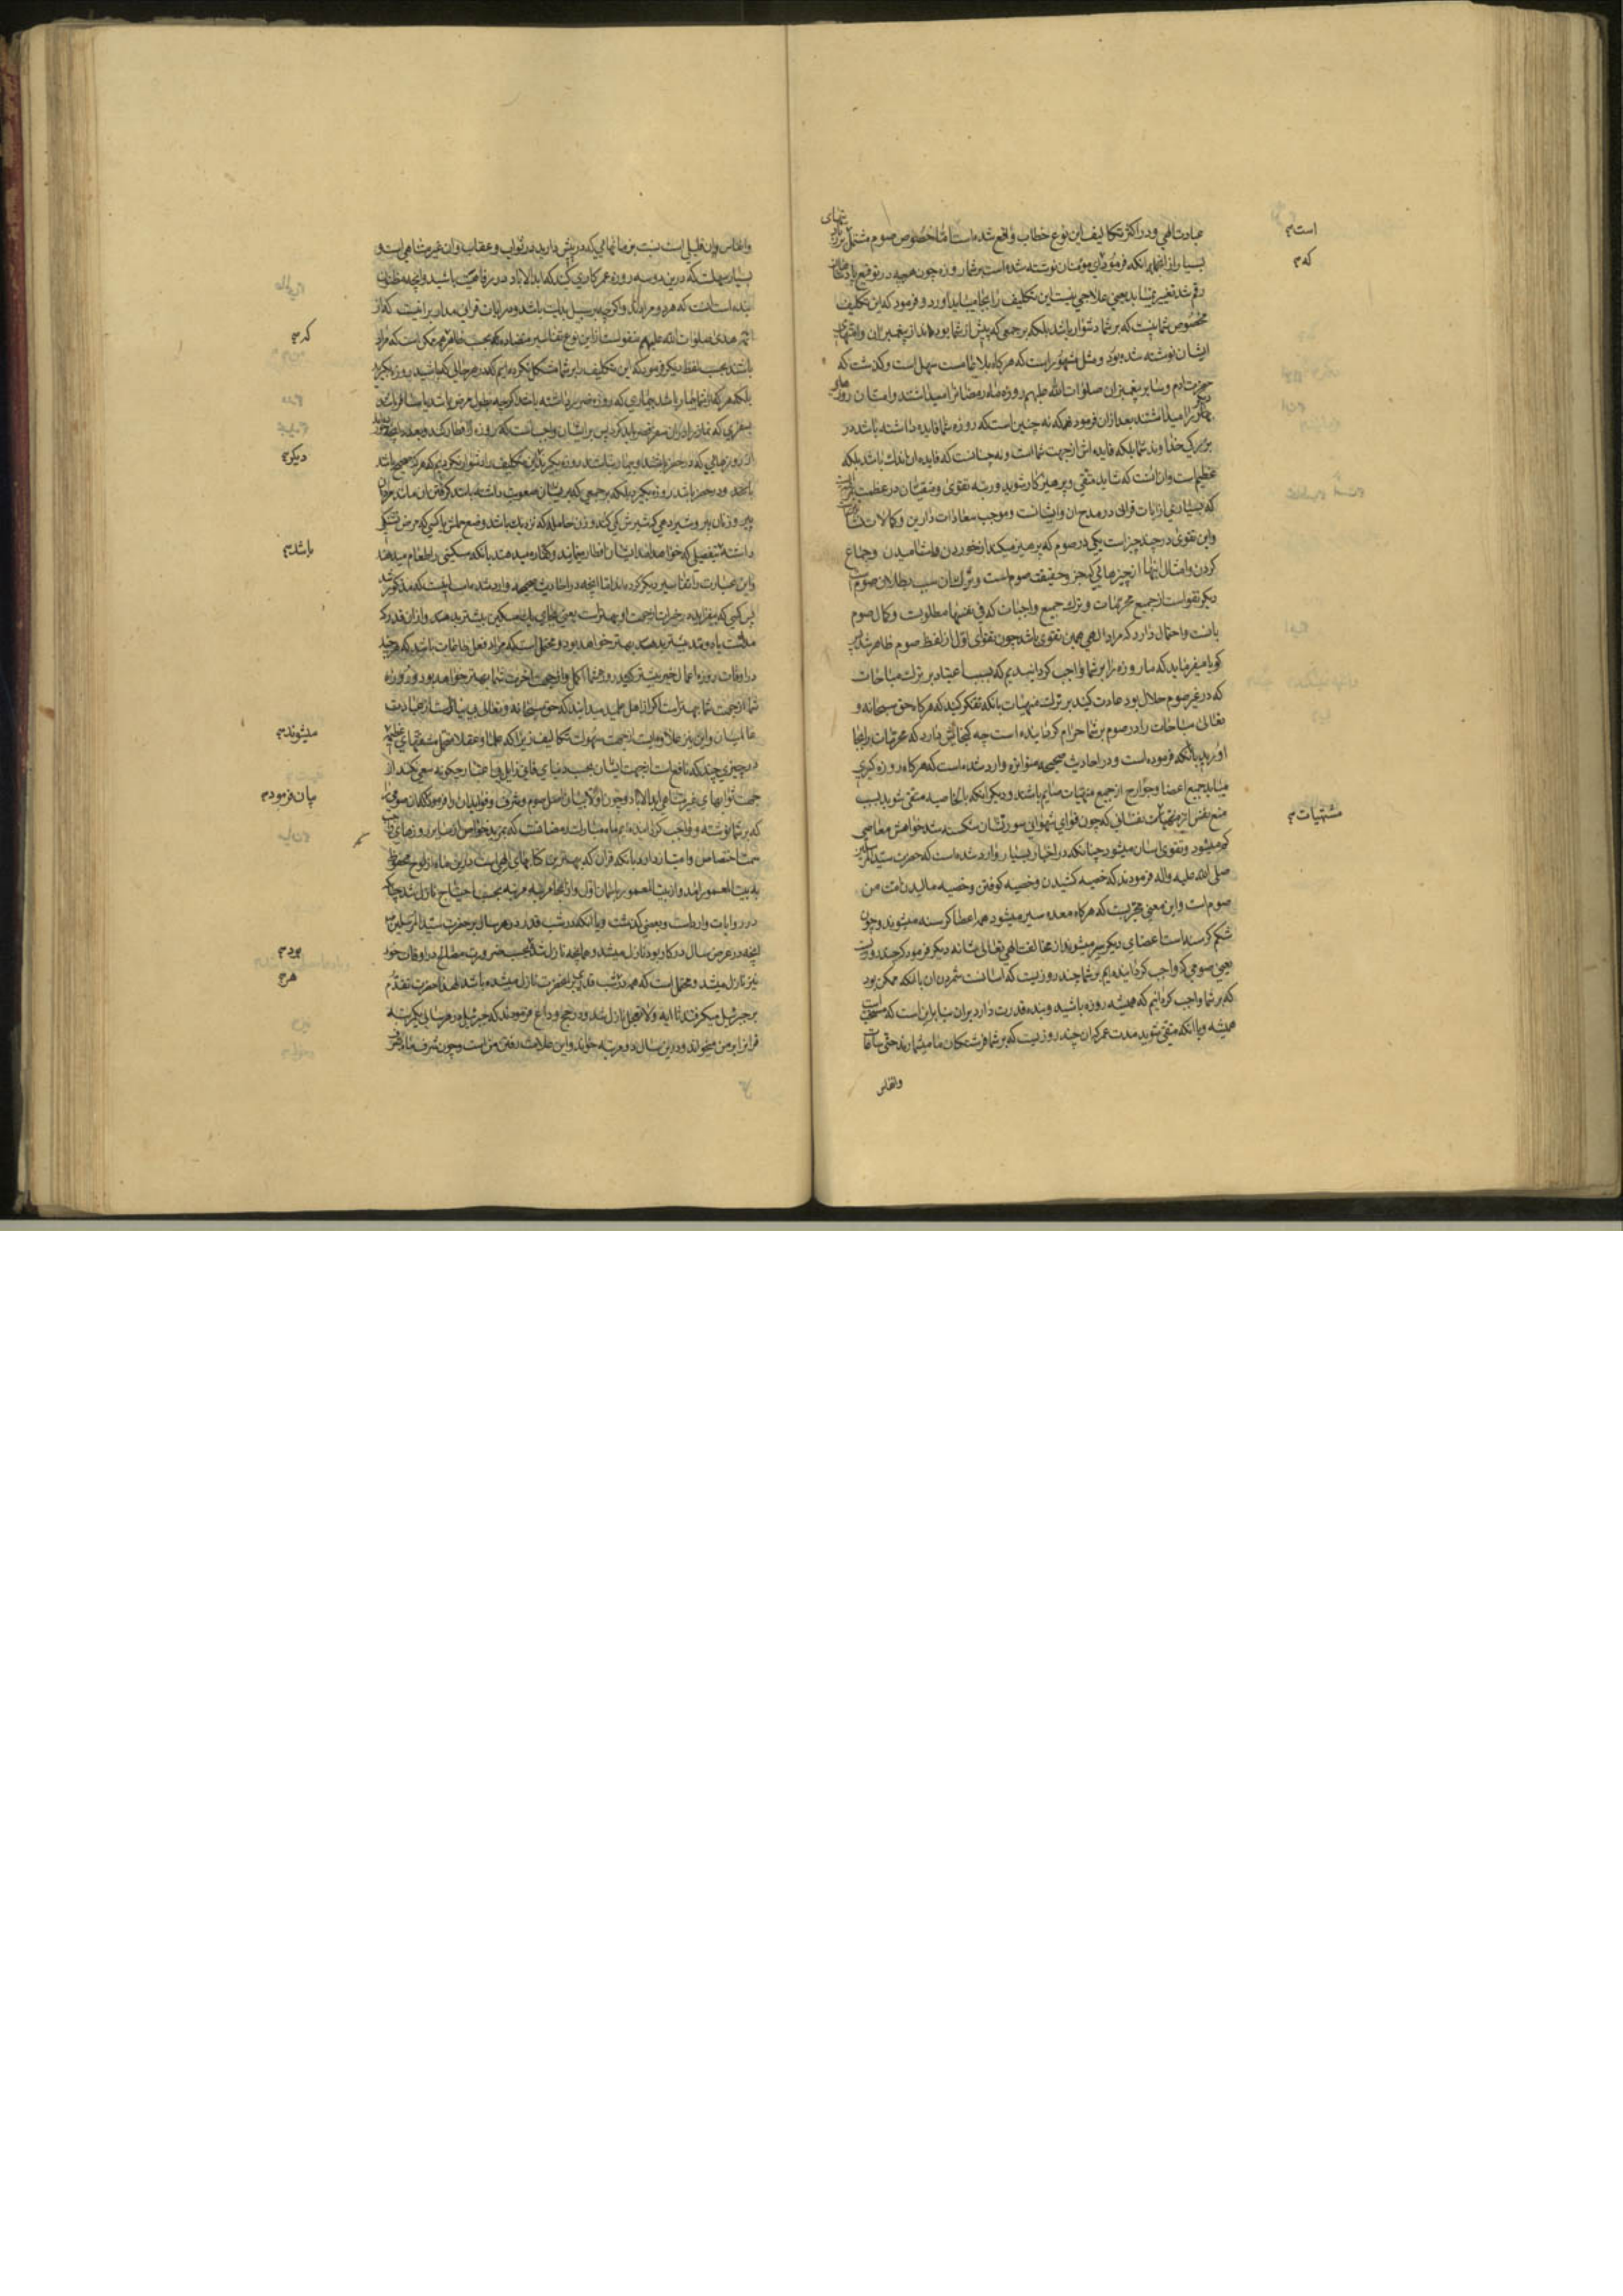 عبادت الهی و در اکثر تکالیف این نوع خطاب واقع شده است اما خصوص صوم مشتمل بر
بسیار از انها بر انکه فرمود ای مومنان نوشته شده است بر شما روزه چون هر چه در توقیع پادشاهان
رقم شد تغییر نمیباید یعنی علاجی نیست این تکلیف را بجا میباید اورد و فرمود که این تکلیف
مخصوص شما نیست که بر شما دشوار باشد بلکه بر جمعی که پیش از شما بوده‌اند از پیغمبران و امتهای
ایشان نوشته شده بود و مثل مشهور است که هر کاه بلا عامست سهل است و کذشت که
حضرت ادم و سایر پیغمبران صلوات الله علیهم روزه ماه رمضان را میداشتند و امتان روزهای
دیکر را میداشتند بعد از ان فرمودهمکه نه چنین است که روزه شما فایده داشته باشد در
بزرکی خداوند شما بلکه فایده اش از جهت شما است و نه چنانست که فایده ان اندک باشد بلکه
عظیم است و ان انست که شاید متقی و پرهیزکار شوید و رتبه تقوی و متقیان در عظمت
که بسیاری از ایات قرانی در مدح ان و ایشانست و موجب سعادات دارین و کمالات
و این تقوی در چند چیز است یکی در صوم که پرهیز میکند از خوردن و اشامیدن و جماع
کردن و امثال اینها از چیزهائی که جزو حقیقت صوم است و ترک ان سبب بطلان صوم است
دیکر تقوی است از جمیع محرمات و ترک جمیع واجبات که فی نفسها مطلوبست و کمال صوم
بانست و احتمال دارد که مراد الهی همین تقوی باشد چون تقوای اول از لفظ صوم ظاهر شد پس
کویا میفرماید که ما روزه را بر شما واجب کردانیدیم که بسبب اعتیاد بر ترک مباحات
که در غیر صوم حلال بود عادت کنید بر ترک منهیات بانکه تفکر کنید که هر کاه حق سبحانه و
تعالی مباحات را در صوم بر شما حرام کردانیده است چه کنجایش دارد که محرمات را بجا
اورید بانکه فرموده است و در احادیث صحیحه متواتره وارد شده است که هر کاه روزه کیری
میباید جمیع اعضا و جوارح از جمیع منهیات صایم باشند و دیکر انکه بالخاصیه متقی شوید بسبب
منع نفس از مشتهیات نفسانی که چون قوای شهوانی سورتشان شکسته شد خواهش معاصی
کم میشود و تقوی اسان میشود چنانکه در اخبار بسیار وارد شده است که حضرت سید المرسلین
صلی الله علیه و اله فرمودند که خصیه کشیدن و خصیه کوفتن و خصیه مالیدن امت من
صوم است و این معنی مجربست که هر کاه معده سیر میشود همه اعضا کرسنه میشوند و چون
شکم کرسنه است اعضای دیکر سیر میشوند از مخالفت الهی تعالی شانه دیکر فرمود که چند روزیست
یعنی صومی که واجب کردانیده‌ایم بر شما چند روزیست که اسانست شمردن ان بانکه ممکن بود
که بر شما واجب کردانیم که همیشه روزه باشید و بنده قدرت دارد بران بنا بر این است که مستحب است
همیشه و یا انکه متقی شوید مدت عمرکان چند روزیست که بر شما فرشتکان ما میشمارند حتی ساعات
وانفاس
است
که
مشتهیات
وانفاس و ان قلیل است نسبت بزمانهایی که در پیش دارید در ثواب و عقاب و ان غیر متناهی است و
بسیار سهلست که درین دو سه روزه عمر کاری کنند که ابدالاباد در رفاهیت باشید و انچه مظنون
بنده است انست که هر دو مراد باشد و اکرچه بر سبیل بدلیت باشد و مدار ایات قرانی برانست که از
ائمه هدی صلوات الله علیهم منقولست از این نوع تفاسیر متضاده که بحسب ظاهر هم ممکن است که مراد
باشد بحسب لفظ دیکر فرمود که این تکلیف را بر شما مشکل نکرده‌ایم که در هر حالی که باشید روزه بکیرید
بلکه هر که از شما بیمار باشد بیماری که روزه ضرر داشته باشد اکرچه بطول مرض باشد یا مسافر باشد
بسفری که نماز را در ان سفر قصر باید کرد پس بر ایشان واجب است که روزه را افطار کند و بعدد ان
از روزهایی که در حضر باشد و بیمار نباشد روزه بکیرد و این تکلیف را دشوار نکردیم که هر که صحیح باشد
باشد و در حضر باشد روزه بکیرد بلکه بر جمعی که بر ایشان صعوبت داشته باشد کرفتن ان مانند مردان
پیر و زنان پیر و شیردهی که شیرش کم کند و زن حامله که نزدیک باشد وضع حملش یا کسی که مرض تشنکی
داشته بتفصیلی که خواهد امد ایشان افطار مینمایند و کفاره میدهند بانکه مسکینی را طعام میدهند
و این عبارت را تفاسیر دیکر کرده‌اند اما انچه در احادیث صحیحه وارد شده است انست که مذکور شد
پس کسی که بیفزاید در خیرات از جهت او بهتر است یعنی بجای یک مسکین بیشتر بدهد و از ان قدر که
مدیست یا دو مد بیشتر بدهد بهتر خواهد بود و محتمل است که مراد فعل طاعات باشد که هر چند
در اوقات روزه اعمال خیر بیشتر کنید روزه شما اکمل و از جهت اخرت شما بهتر خواهد بود و روزه
شما از جهت شما بهتر است اکر از اهل علمید میدانید که حق سبحانه و تعالی بی‌نیاز است از عبادت
عالمیان و این نیز علاوه ایست از جهت سهولت تکالیف زیرا که علما و عقلا متحمل مشقتهای عظیم
در چیزی چند که نافع است از جهت ایشان بحسب دنیای فانی زایل بی اعتبار چکونه سعی نکنند از
جهت ثوابهای غیر متناهی ابدالاباد و چون اولا بیان اصل صوم و شرف و فواید ان را فرمود که ان صومی را
که بر شما نوشته و واجب کردانیده‌ایم ماه مبارک رمضانست که بمزید خواص از سایر روزها
سمت اختصاص و امتیاز دارد بانکه قران که بهترین کتابهای الهی است درین ماه از لوح محفوظ
به بیت المعمور امد و از بیت المعمور باسمان اول و از انجا مرتبه مرتبه بحسب احتیاج نازل شد چنانکه
در روایات وارد است و بعضی کذشت و یا انکه در شب قدر در هر سال بر حضرت سید المرسلین
انچه در عرض سال در کار بود نازل میشد و همانچه نازل شد بحسب ضرورت و مصالح در اوقات خود
نیز نازل میشد و محتمل است که همه در شب قدر بر انحضرت نازل میشده باشد لهذا حضرت تقدم
بر جبرئیل میکرفتند تا ایه ولا تعجل نازل شد و در حج وداع فرمودند که جبرئیل در هر سالی یکمرتبه
قران را بر من میخواند و درین سال دو مرتبه خواند و این علامت رفتن من است و چون شرف ماه
که
دیکر
باشد
میشوند
بیان فرمود
بود
هر